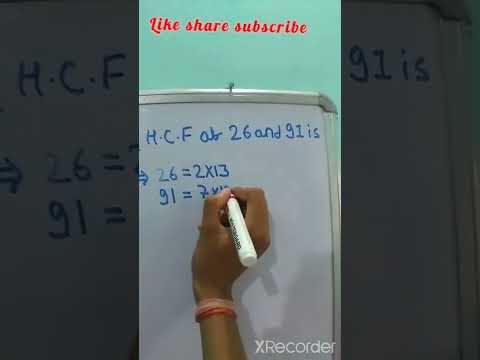 Like share subscribe
H.C.F of 26 and 91 is
⇒ 26 = 2×13
91 = 7×
XRecorder